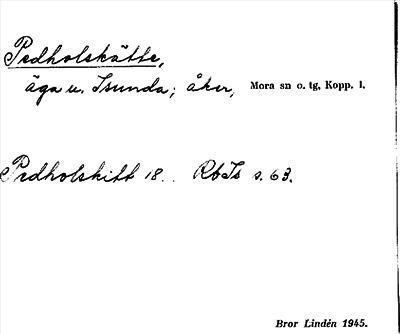 Predholskätte,
äga u. Isunda; åker, Mora sn o. tg, Kopp. l.
Predholskitt 18. . RbIs s. 63.
Bror Lindén 1945.